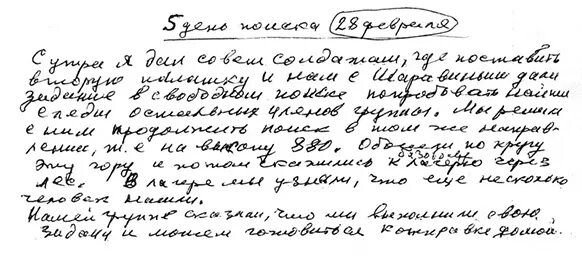 5 день поиска (28 февраля)
С утра я дал совет солдатам, где поставить
вторую палатку и нам с Шаравиным дали
задание в свободном поиске попробовать найти
следы остальных членов группы. Мы решили
с ним продолжить поиск в том же направ-
лении, т.е на высоту 880. Обошли по кругу
эту гору и потом скатились к лагерю через
лес. В лагере мы узнали, что еще несколько
человек нашли.
Нашей группе сказали, что мы выполнили свою
задачу и можем готовиться к отправке домой.